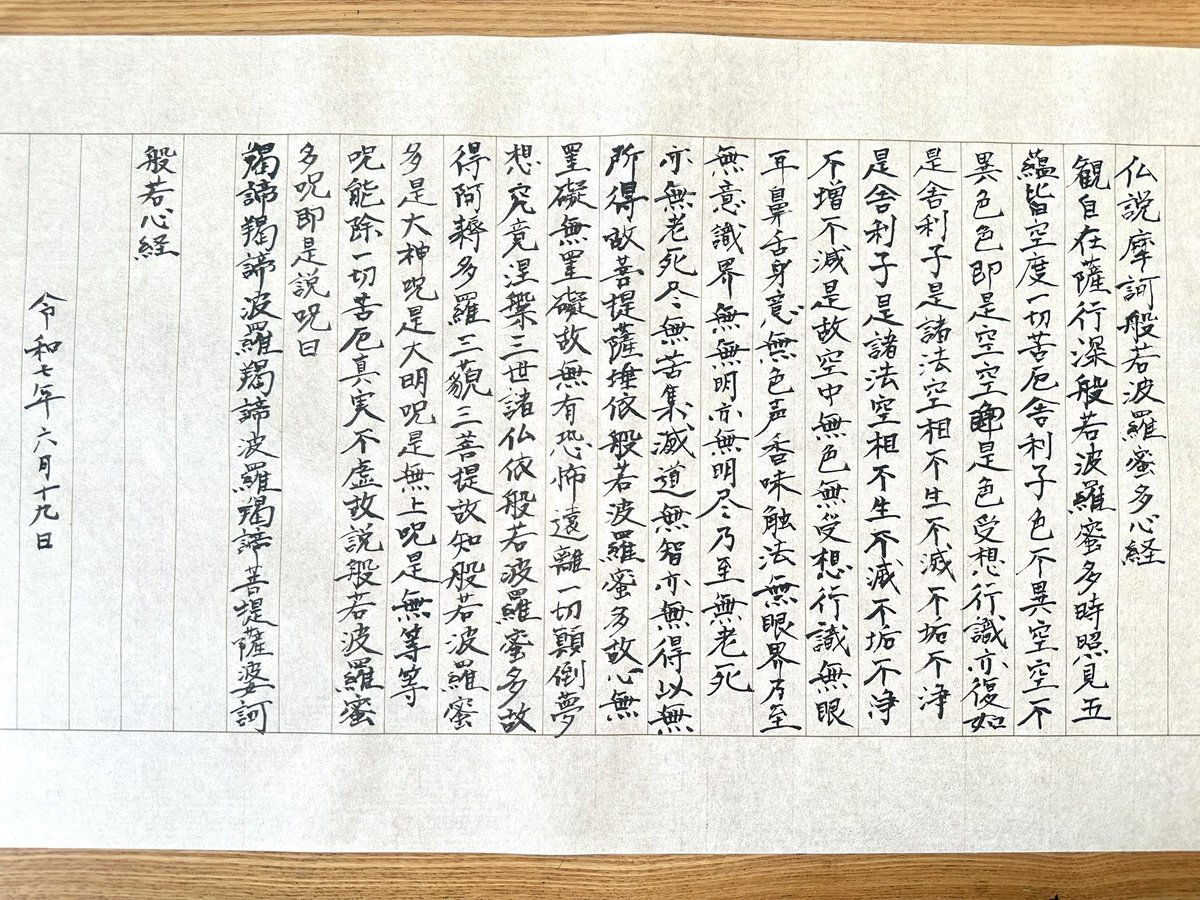 仏説摩訶般若波羅蜜多心経
観自在薩行深般若波羅蜜多時照見五
蘊皆空度一切苦厄舎利子色不異空空不
異色色即是空空即是色受想行識亦復如
是舎利子是諸法空相不生不滅不垢不浄
是舎利子是諸法空相不生不滅不垢不浄
不増不減是故空中無色無受想行識無眼
耳鼻舌身意無色声香味触法無眼界乃至
無意識界無無明亦無明尽乃至無老死
亦無老死尽無苦集滅道無智亦無得以無
所得故菩提薩埵依般若波羅蜜多故心無
罣礙無罣礙故無有恐怖遠離一切顛倒夢
想究竟涅槃三世諸仏依般若波羅蜜多故
得阿耨多羅三藐三菩提故知般若波羅蜜
多是大神呪是大明呪是無上呪是無等等
呪能除一切苦厄真実不虚故説般若波羅蜜
多呪即是説呪曰
羯諦羯諦波羅羯諦波羅羯諦菩提薩婆訶
般若心経
令和七年六月十九日